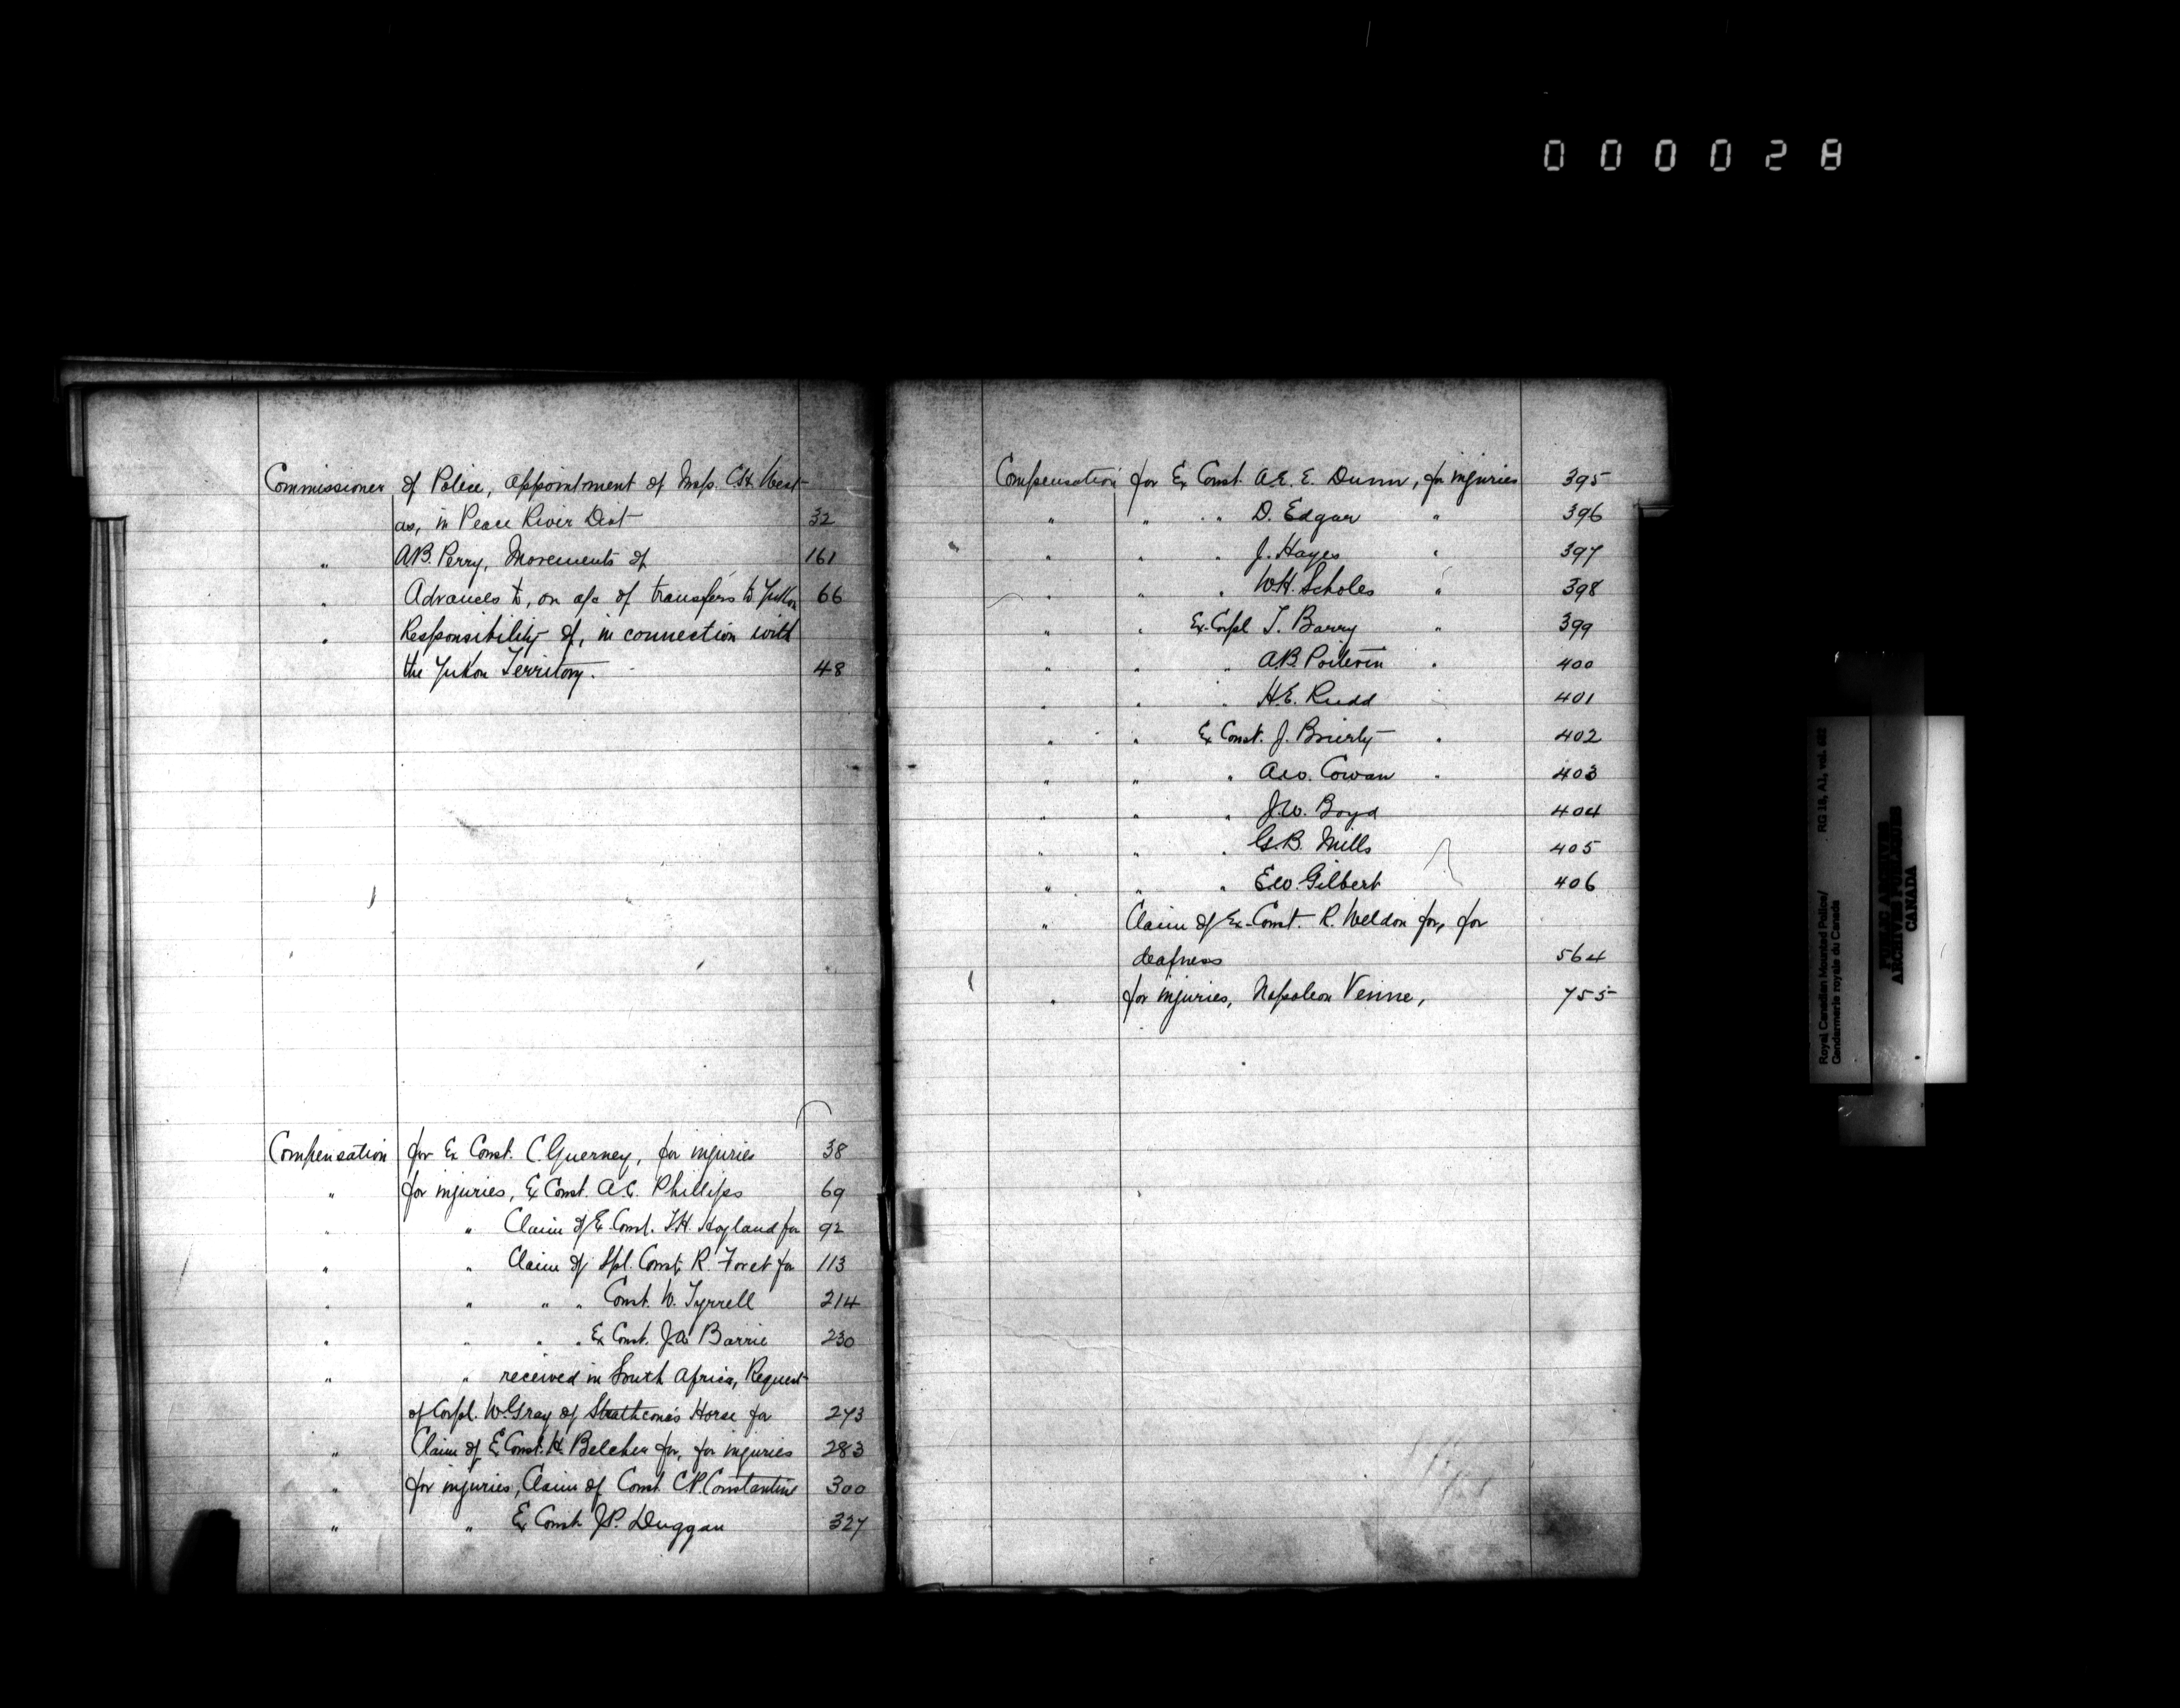 000028
Commissioner of Police, appointment of Insp. C.H. West
as, in Peace River Dist 32
" A.B. Perry, Movements of 161
" Advances to, on a/c of transfers to Yukon 66
" Responsibility of, in connection with
the Yukon Territory. 48
Compensation for Ex Const. C. Guerney, for injuries 38
" for injuries, Ex Const. A.C. Phillips 69
" " Claim of Ex Const. T.H. Hoyland for 92
" " Claim of Spl. Const. R. Foret for 113
" " " " Const. W. Tyrrell 214
" " " " Ex Const. J.A. Barrie 230
" " received in South Africa, Request
of Corpl. W. Gray of Strathcona's Horse for 273
" Claim of Ex Const. H. Belcher for, for injuries 283
" for injuries, Claim of Const. C.P. Constantine 300
" " Ex Const. J.P. Duggan 327
Compensation for Ex Const. A.E.E. Dunn, for injuries 395
" " " D. Edgar " 396
" " " J. Hayes " 397
" " " W.H. Scholes " 398
" " Ex-Corpl T. Barry " 399
" " " A.B. Poitevin " 400
" " " H.E. Rudd 401
" " Ex Const. J. Brierly " 402
" " " A.W. Cowan " 403
" " " J.W. Boyd 404
" " " G.B. Mills 405
" " " E.W. Gilbert 406
" Claim of Ex-Const. R. Weldon for, for
deafness 564
" for injuries, Napoleon Venne, 755
Royal Canadian Mounted Police/
Gendarmerie royale du Canada
RG 18, A1, vol.
PUBLIC ARCHIVES
ARCHIVES PUBLIQUES
CANADA